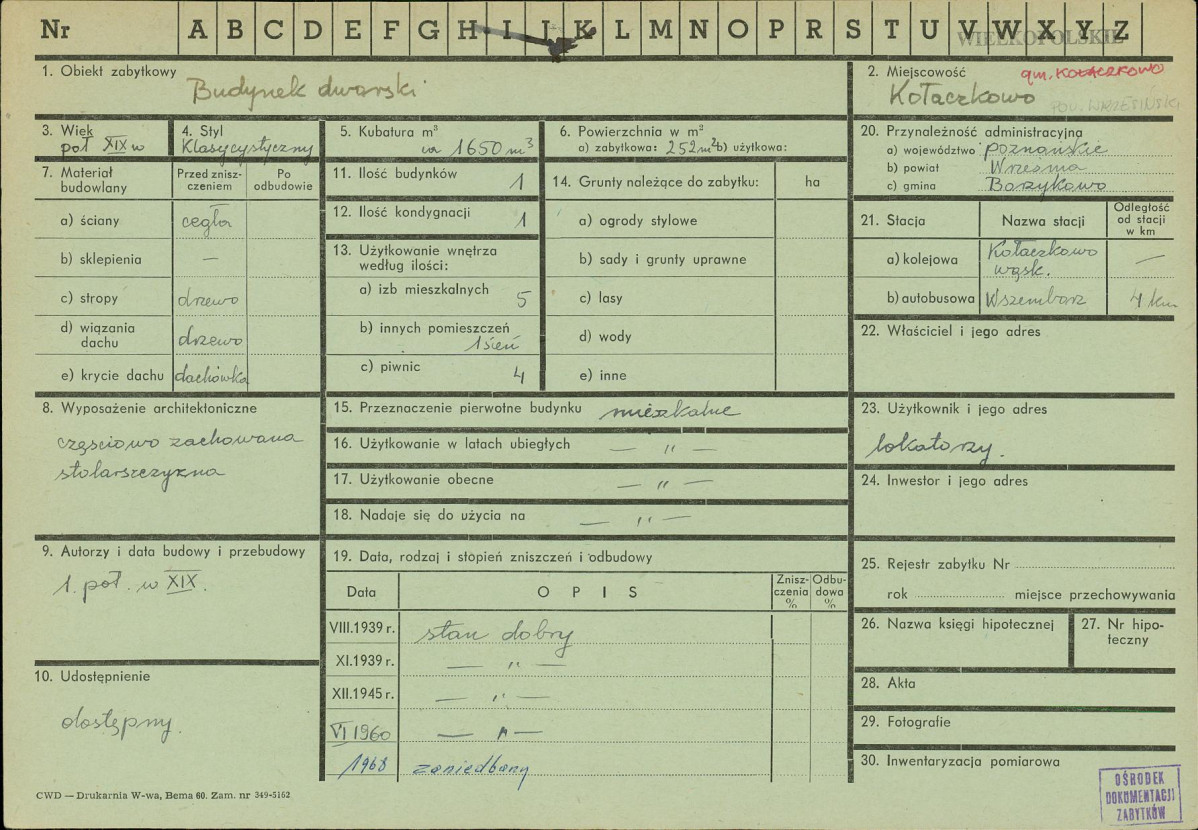 Nr A B C D E F G H I J K L M N O P R S T U V W X Y Z
WIELKOPOLSKIE
1. Obiekt zabytkowy
Budynek dworski
2. Miejscowość
gm. KOŁACZKOWO
Kołaczkowo
POW. WRZESIŃSKI
3. Wiek
poł XIX w
4. Styl
Klasycystyczny
5. Kubatura m³
ca 1650 m³
6. Powierzchnia w m²
a) zabytkowa: 252 m² b) użytkowa:
20. Przynależność administracyjna
a) województwo poznańskie
b) powiat Września
c) gmina Borzykowo
7. Materiał budowlany
Przed zniszczeniem
Po odbudowie
a) ściany cegła
b) sklepienia —
c) stropy drzewo
d) wiązania dachu drzewo
e) krycie dachu dachówka
11. Ilość budynków 1
12. Ilość kondygnacji 1
13. Użytkowanie wnętrza
według ilości:
a) izb mieszkalnych 5
b) innych pomieszczeń
1 sień
c) piwnic 4
14. Grunty należące do zabytku: ha
a) ogrody stylowe
b) sady i grunty uprawne
c) lasy
d) wody
e) inne
21. Stacja
Nazwa stacji
Odległość
od stacji
w km
a) kolejowa Kołaczkowo
wąsk. —
b) autobusowa Wszembórz 4 km
22. Właściciel i jego adres
8. Wyposażenie architektoniczne
częściowo zachowana
stolarszczyzna
15. Przeznaczenie pierwotne budynku mieszkalne
16. Użytkowanie w latach ubiegłych — " —
17. Użytkowanie obecne — " —
18. Nadaje się do użycia na — " —
23. Użytkownik i jego adres
lokatorzy.
24. Inwestor i jego adres
9. Autorzy i data budowy i przebudowy
1. poł. w XIX.
19. Data, rodzaj i stopień zniszczeń i odbudowy
Data
O P I S
Zniszczenia %
Odbudowa %
VIII.1939 r. stan dobry
XI.1939 r. — " —
XII.1945 r. — " —
VI 1960 — " —
1968 zaniedbany
10. Udostępnienie
dostępny.
25. Rejestr zabytku Nr
rok miejsce przechowywania
26. Nazwa księgi hipotecznej
27. Nr hipo-
teczny
28. Akta
29. Fotografie
30. Inwentaryzacja pomiarowa
CWD — Drukarnia W-wa, Bema 60. Zam. nr 349-5162
OŚRODEK
DOKUMENTACJI
ZABYTKÓW